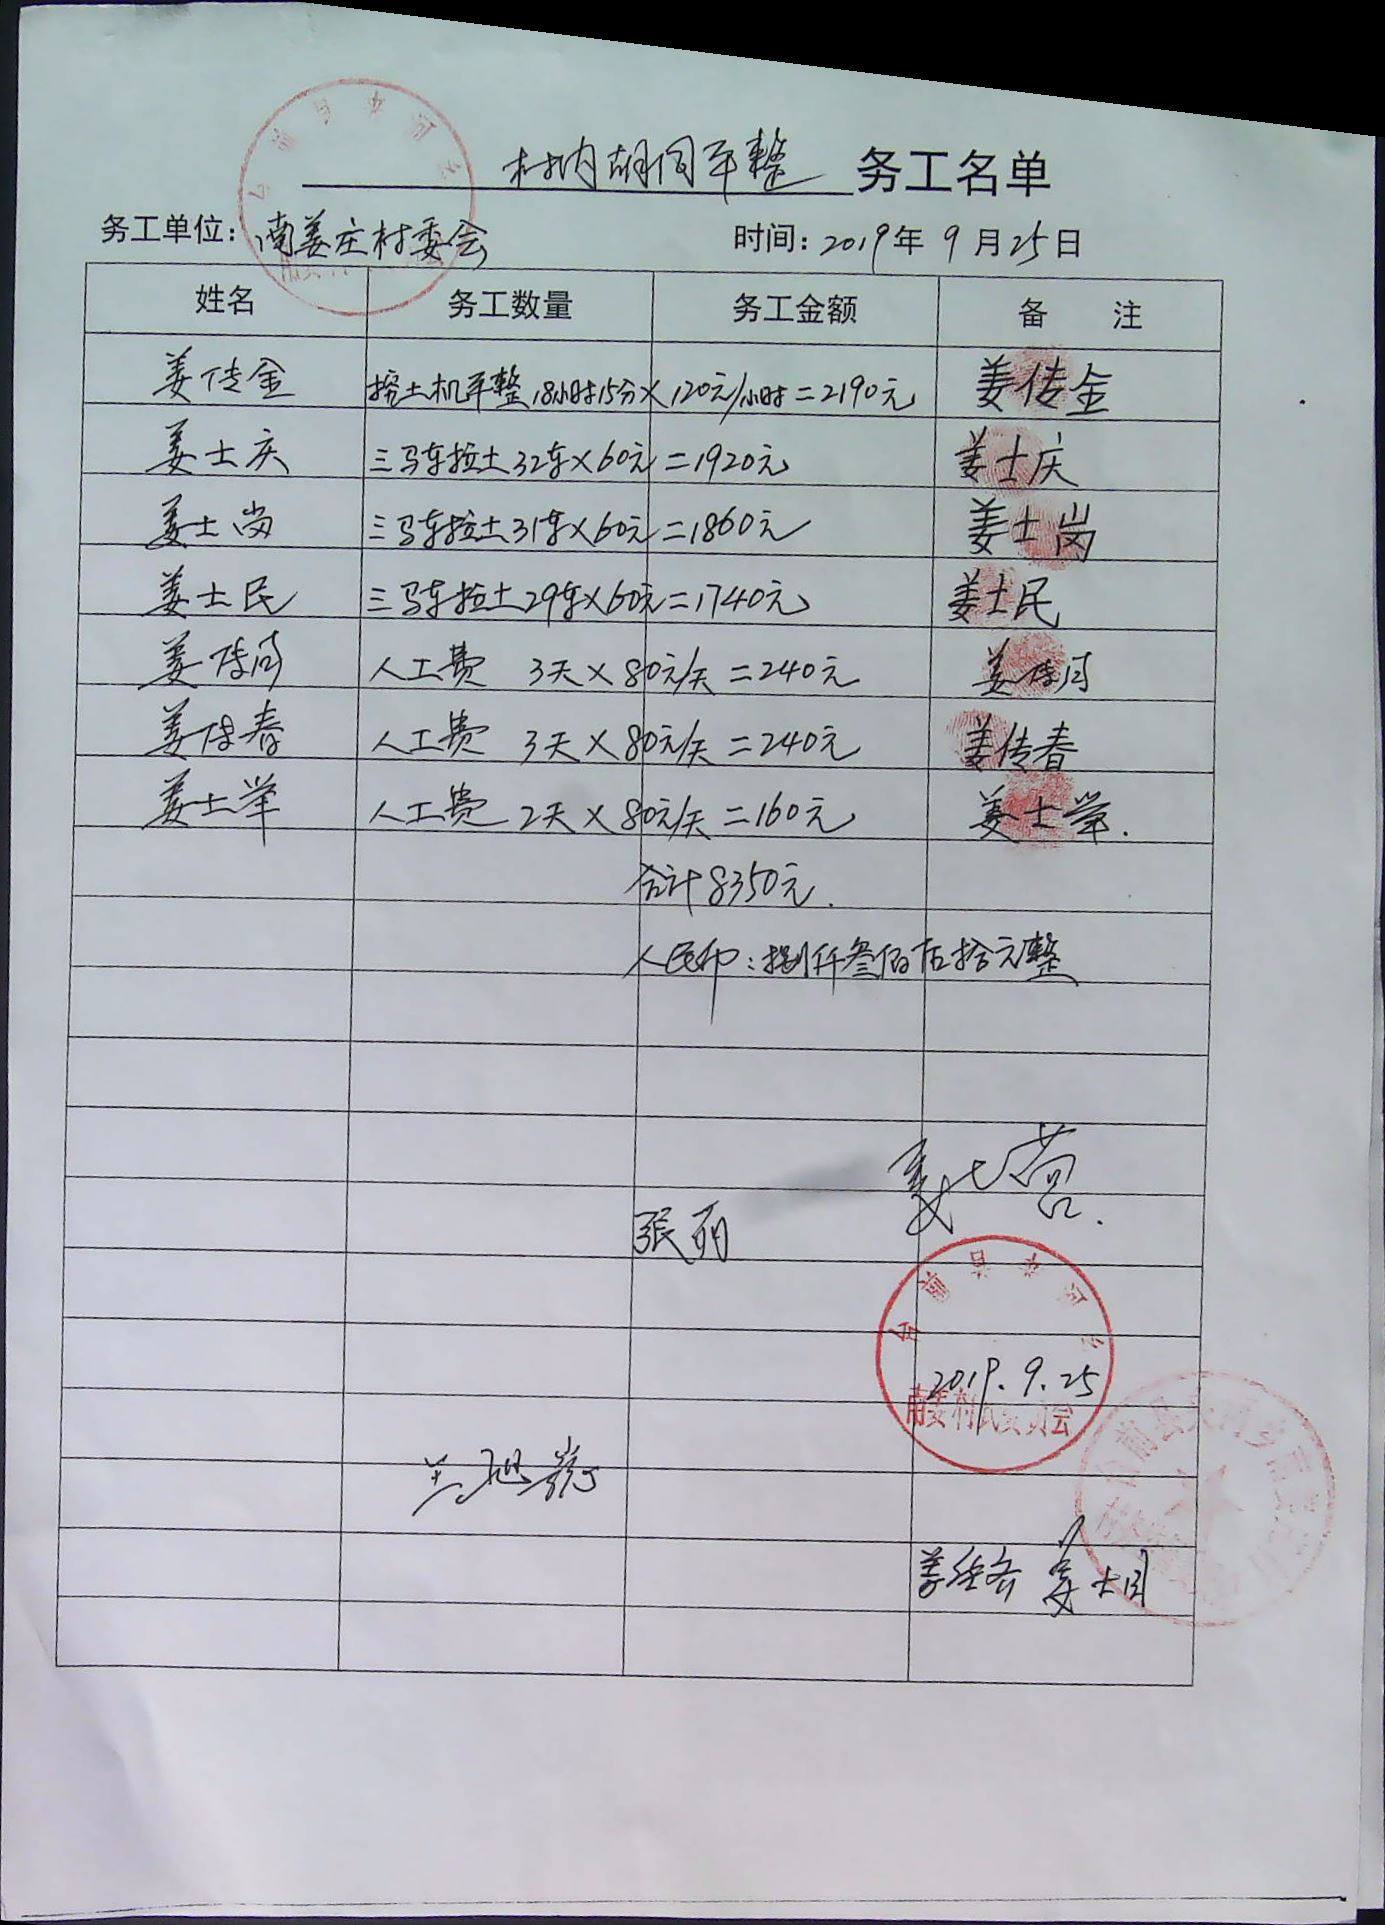 村内胡同平整 务工名单
务工单位：南姜庄村委会 时间：2019年9月25日
姓名 务工数量 务工金额 备 注
姜传金 挖土机平整18小时15分×120元/小时=2190元 姜传金
姜士庆 三马车拉土32车×60元=1920元 姜士庆
姜士岗 三马车拉土31车×60元=1860元 姜士岗
姜士民 三马车拉土29车×60元=1740元 姜士民
姜传同 人工费 3天×80元/天=240元 姜传同
姜传春 人工费 3天×80元/天=240元 姜传春
姜士举 人工费 2天×80元/天=160元 姜士举.
合计8350元.
人民币：捌仟叁佰伍拾元整
姜士营.
张丽
2019.9.25
南姜村民委员会
姜士同